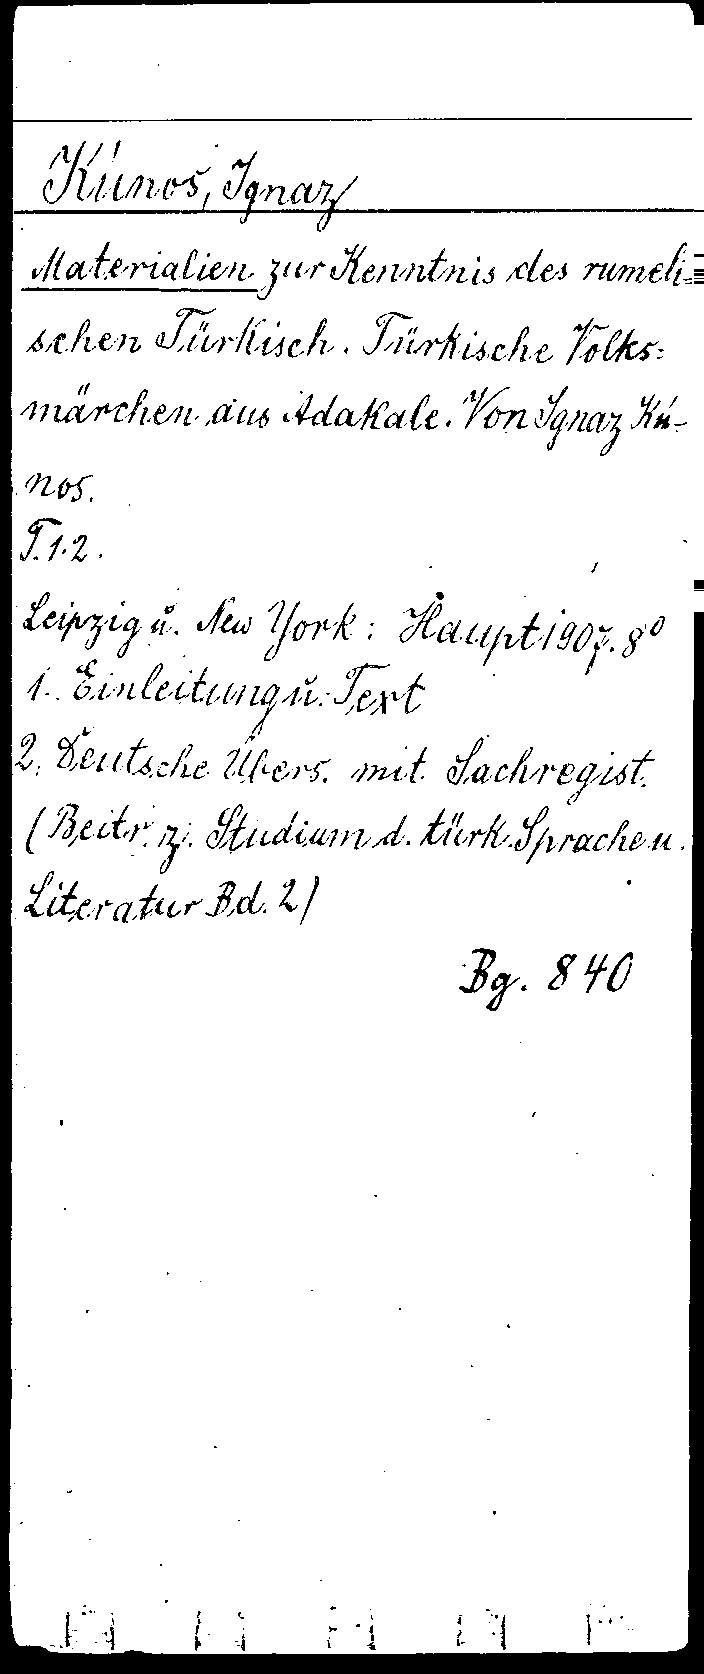 Kúnos, Ignaz
Materialien zur Kenntnis des rumeli=
schen Türkisch. Türkische Volks=
märchen aus Adakale. Von Ignaz Kú-
nos.
T. 1.2.
Leipzig u. New York: Haupt 1907. 8°
1. Einleitung u. Text
2. Deutsche Übers. mit Sachregist.
(Beitr. z. Studium d. türk. Sprache u.
Literatur Bd. 2)
Bg. 840